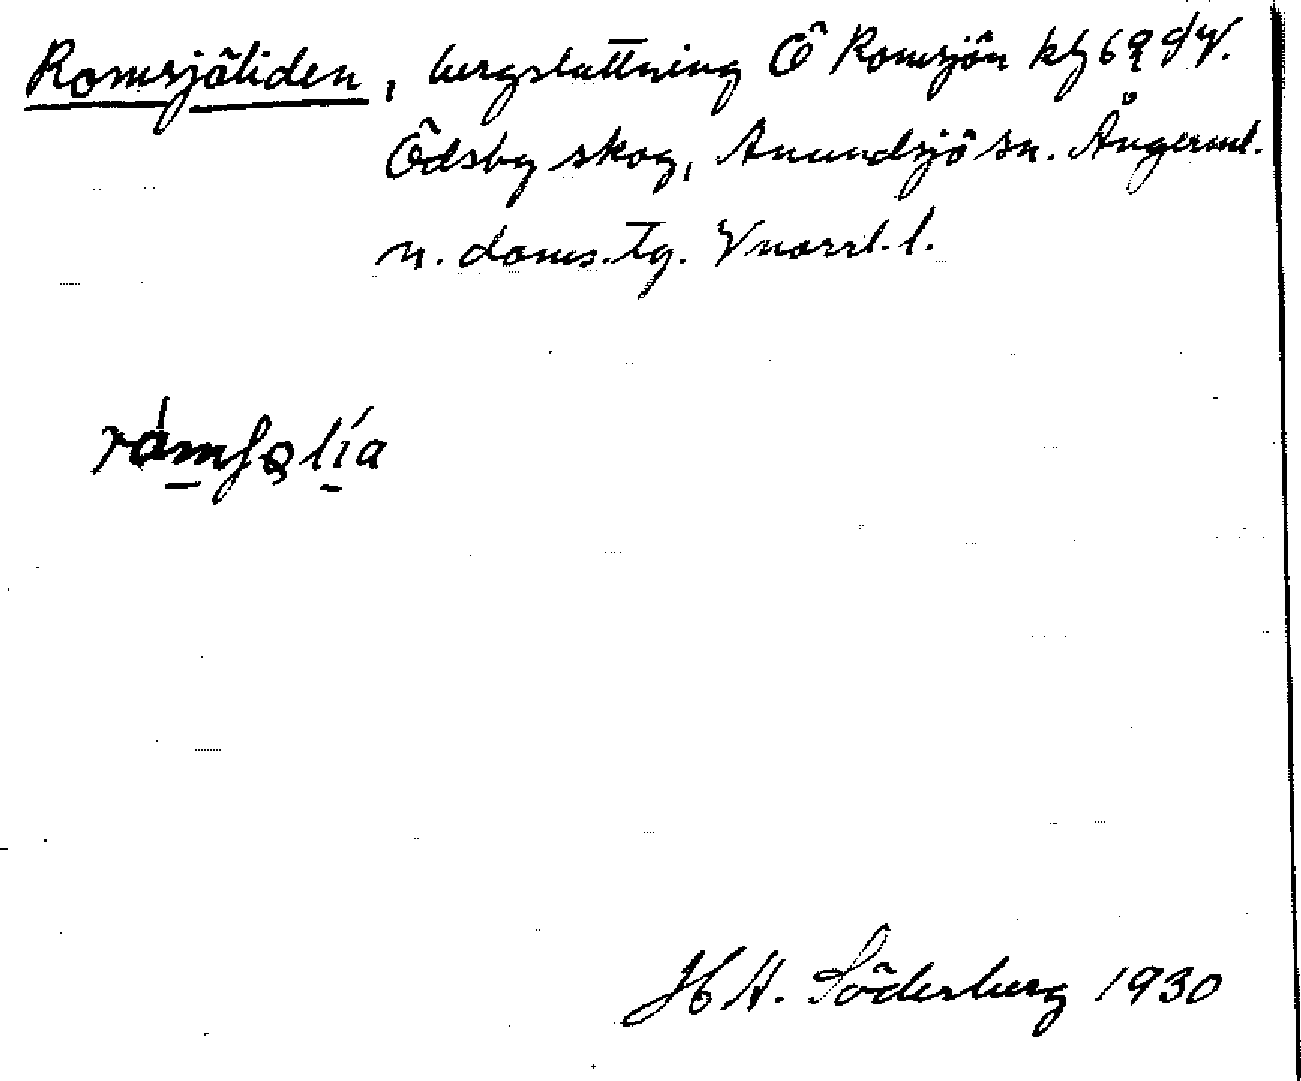 Romsjöliden, bergsluttning Ö Romsjön kf 69 d/V.
Ödsby skog, Anundsjö sn. Ångerml.
n. doms. tg. Vnorrl. l.
H A. Söderberg 1930